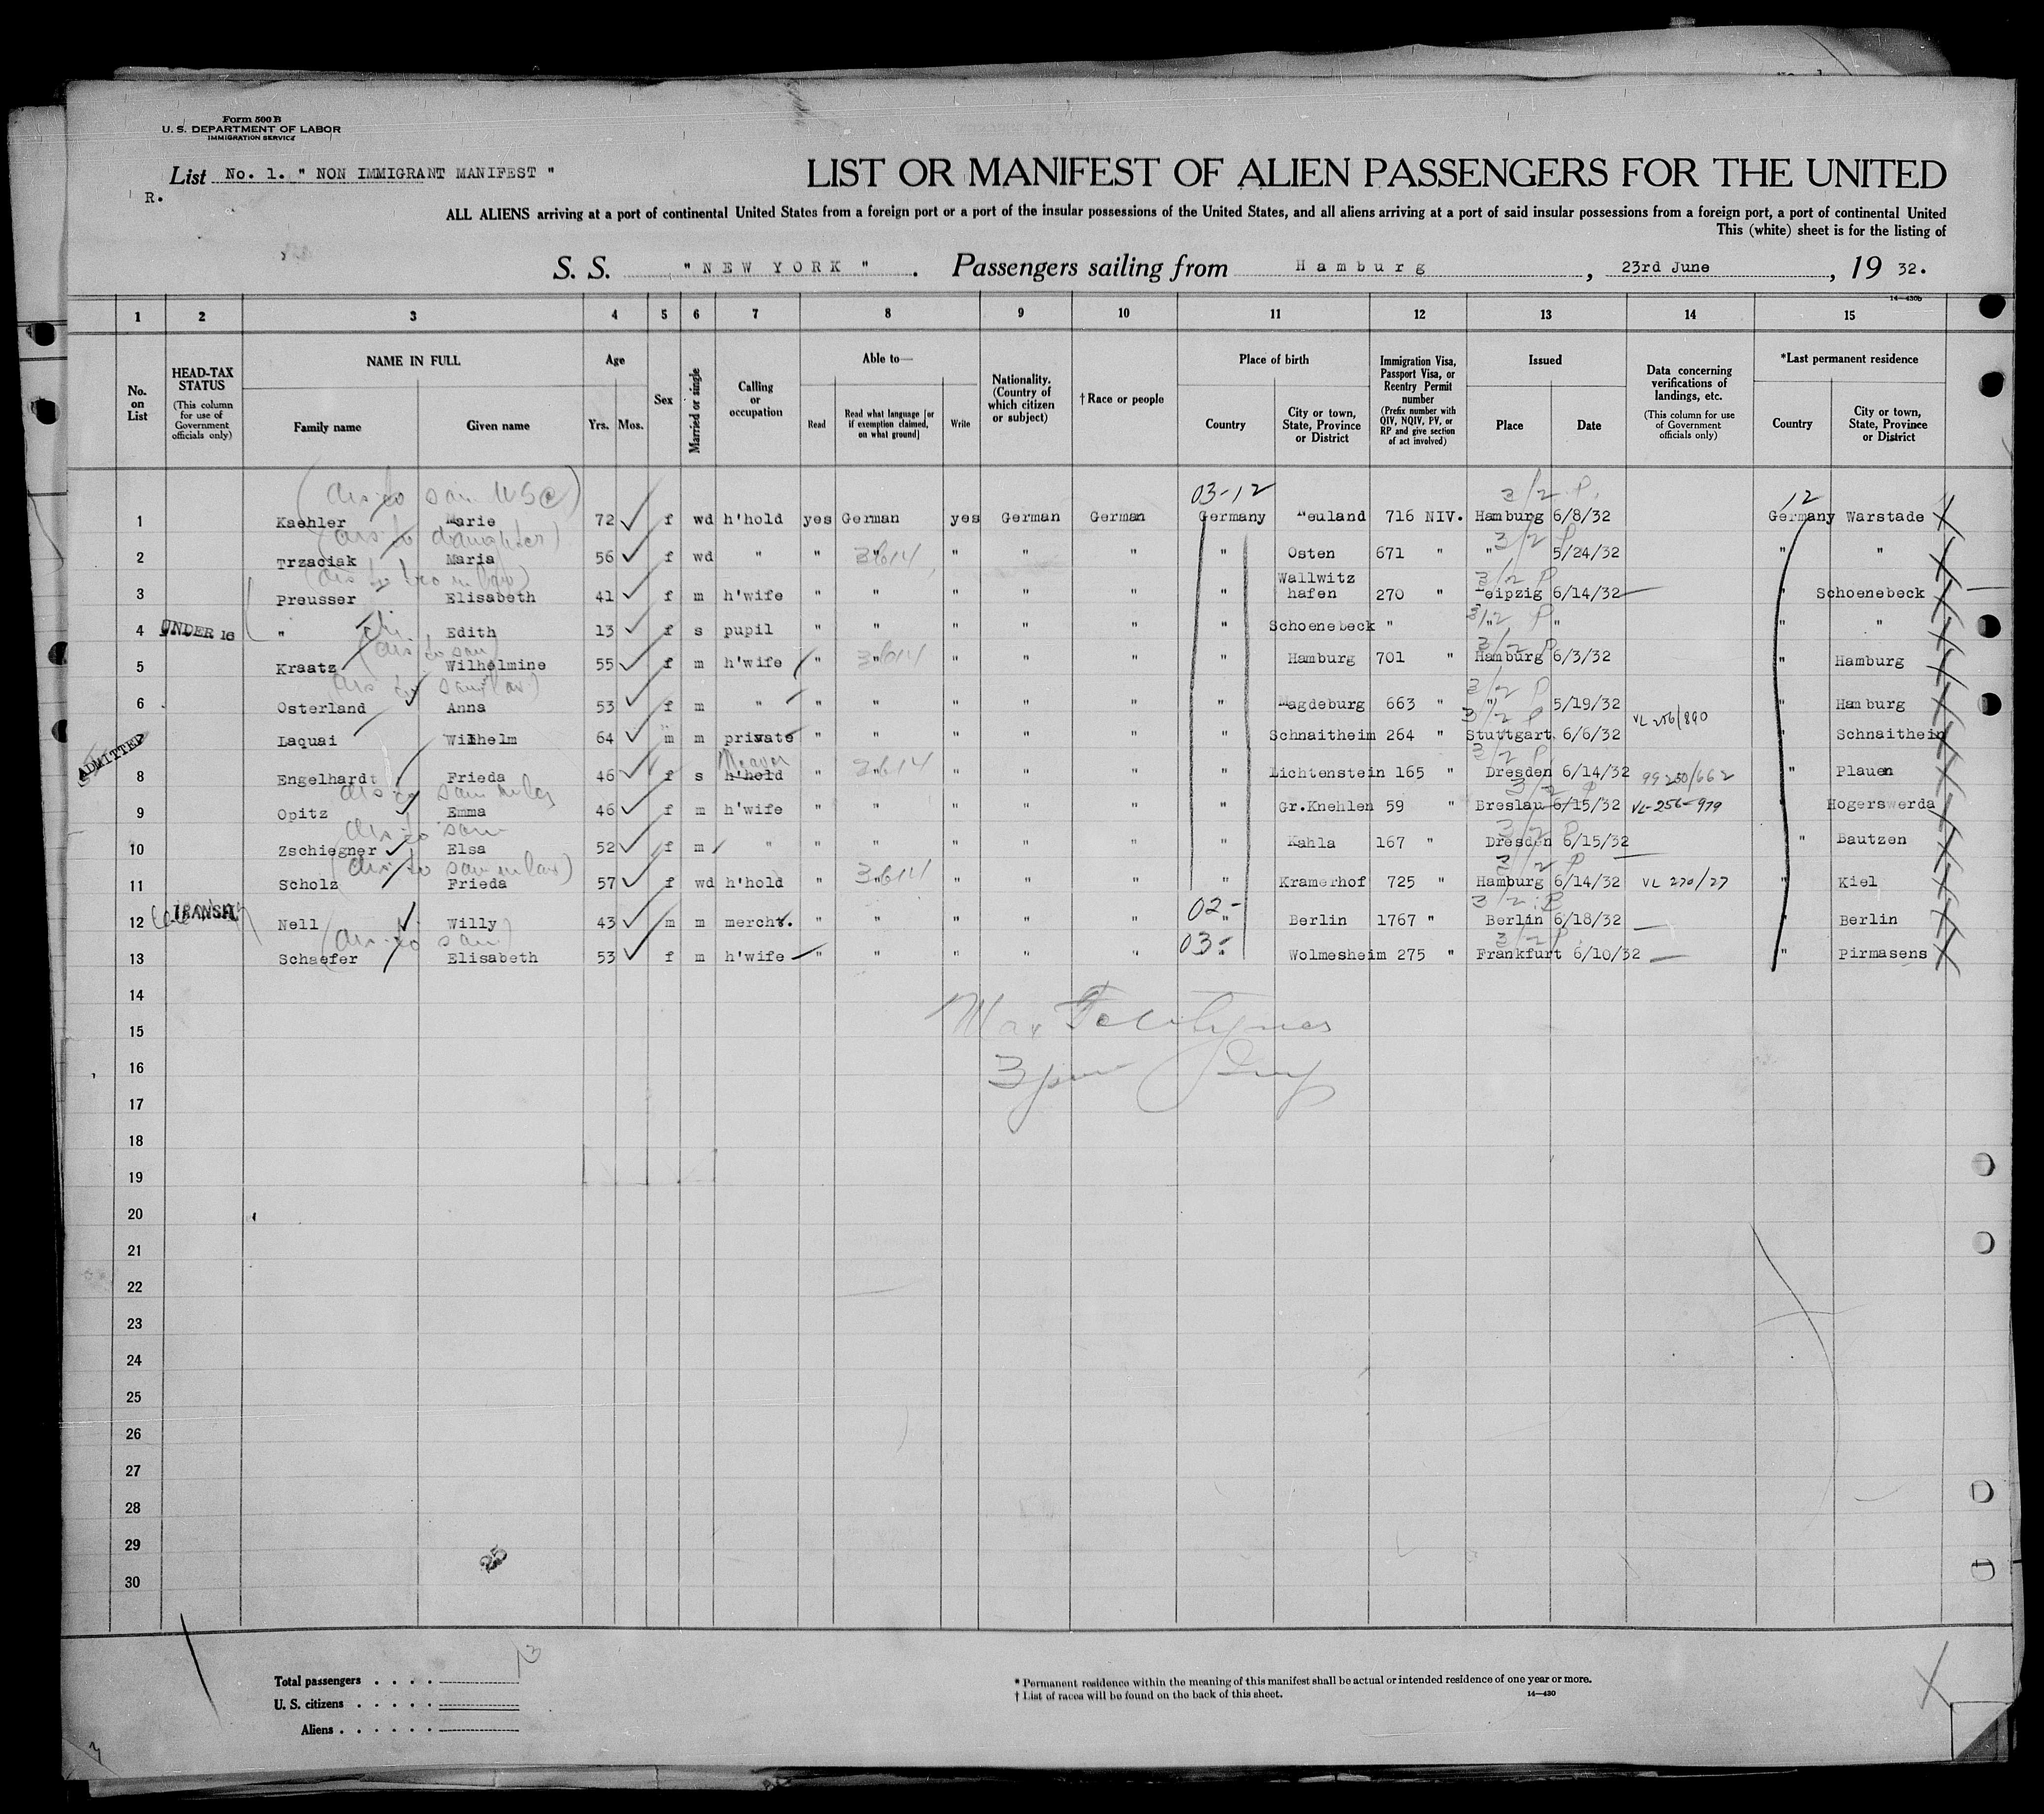 Form 500 B
U. S. DEPARTMENT OF LABOR
IMMIGRATION SERVICE
List No. 1. " NON IMMIGRANT MANIFEST "
R.
LIST OR MANIFEST OF ALIEN PASSENGERS FOR THE UNITED
ALL ALIENS arriving at a port of continental United States from a foreign port or a port of the insular possessions of the United States, and all aliens arriving at a port of said insular possessions from a foreign port, a port of continental United
This (white) sheet is for the listing of
S. S. " NEW YORK " . Passengers sailing from Hamburg , 23rd June , 19 32.
14—430b
1 2 3 4 5 6 7 8 9 10 11 12 13 14 15
No. on List
HEAD-TAX STATUS (This column for use of Government officials only)
NAME IN FULL Family name Given name
Age Yrs. Mos.
Sex
Married or single
Calling or occupation
Able to— Read Read what language [or if exemption claimed, on what ground] Write
Nationality. (Country of which citizen or subject)
† Race or people
Place of birth Country City or town, State, Province or District
Immigration Visa, Passport Visa, or Reentry Permit number (Prefix number with QIV, NQIV, PV, or RP and give section of act involved)
Issued Place Date
Data concerning verifications of landings, etc. (This column for use of Government officials only)
*Last permanent residence Country City or town, State, Province or District
03-12 3/2 P. 12
1 Kaehler Marie 72 f wd h'hold yes German yes German German Germany Neuland 716 NIV. Hamburg 6/8/32 Germany Warstade
daughter) 3/2 P
2 Trzaciak Maria 56 f wd " " " " " " " Osten 671 " " 5/24/32 " "
3/2 P
3 Preusser Elisabeth 41 f m h'wife " " " " " " Wallwitz hafen 270 " Leipzig 6/14/32 " Schoenebeck
3/2 P
4 UNDER 16 " Edith 13 f s pupil " " " " " " Schoenebeck " " " " "
3/2 P
5 Kraatz Wilhelmine 55 f m h'wife " " " " " " Hamburg 701 " Hamburg 6/3/32 " Hamburg
3/2 P
6 Osterland Anna 53 f m " " " " " " " Magdeburg 663 " " 5/19/32 " Hamburg
3/2 P
7 ADMITTED Laquai Wilhelm 64 m m private " " " " " " Schnaitheim 264 " Stuttgart 6/6/32 VL 256/890 " Schnaitheim
Weaver 3/2 P
8 Engelhardt Frieda 46 f s h'hold " " " " " " Lichtenstein 165 " Dresden 6/14/32 99250/662 " Plauen
3/2 P
9 Opitz Emma 46 f m h'wife " " " " " " Gr.Knehlen 59 " Breslau 6/15/32 VL-256-979 " Hogerswerda
3/2 P
10 Zschiegner Elsa 52 f m " " " " " " " Kahla 167 " Dresden 6/15/32 " Bautzen
3/2 P
11 Scholz Frieda 57 f wd h'hold " " " " " " Kramerhof 725 " Hamburg 6/14/32 VL 270/27 " Kiel
02- 3/2 B
12 TRANSIT Nell Willy 43 m m mercht. " " " " " " Berlin 1767 " Berlin 6/18/32 " Berlin
03- 3/2 P
13 Schaefer Elisabeth 53 f m h'wife " " " " " " Wolmesheim 275 " Frankfurt 6/10/32 " Pirmasens
14
15
16
17
18
19
20
21
22
23
24
25
26
27
28
29
30
25
Total passengers . . . . 13
U. S. citizens . . . . .
Aliens . . . . . .
* Permanent residence within the meaning of this manifest shall be actual or intended residence of one year or more.
† List of races will be found on the back of this sheet.
14—430